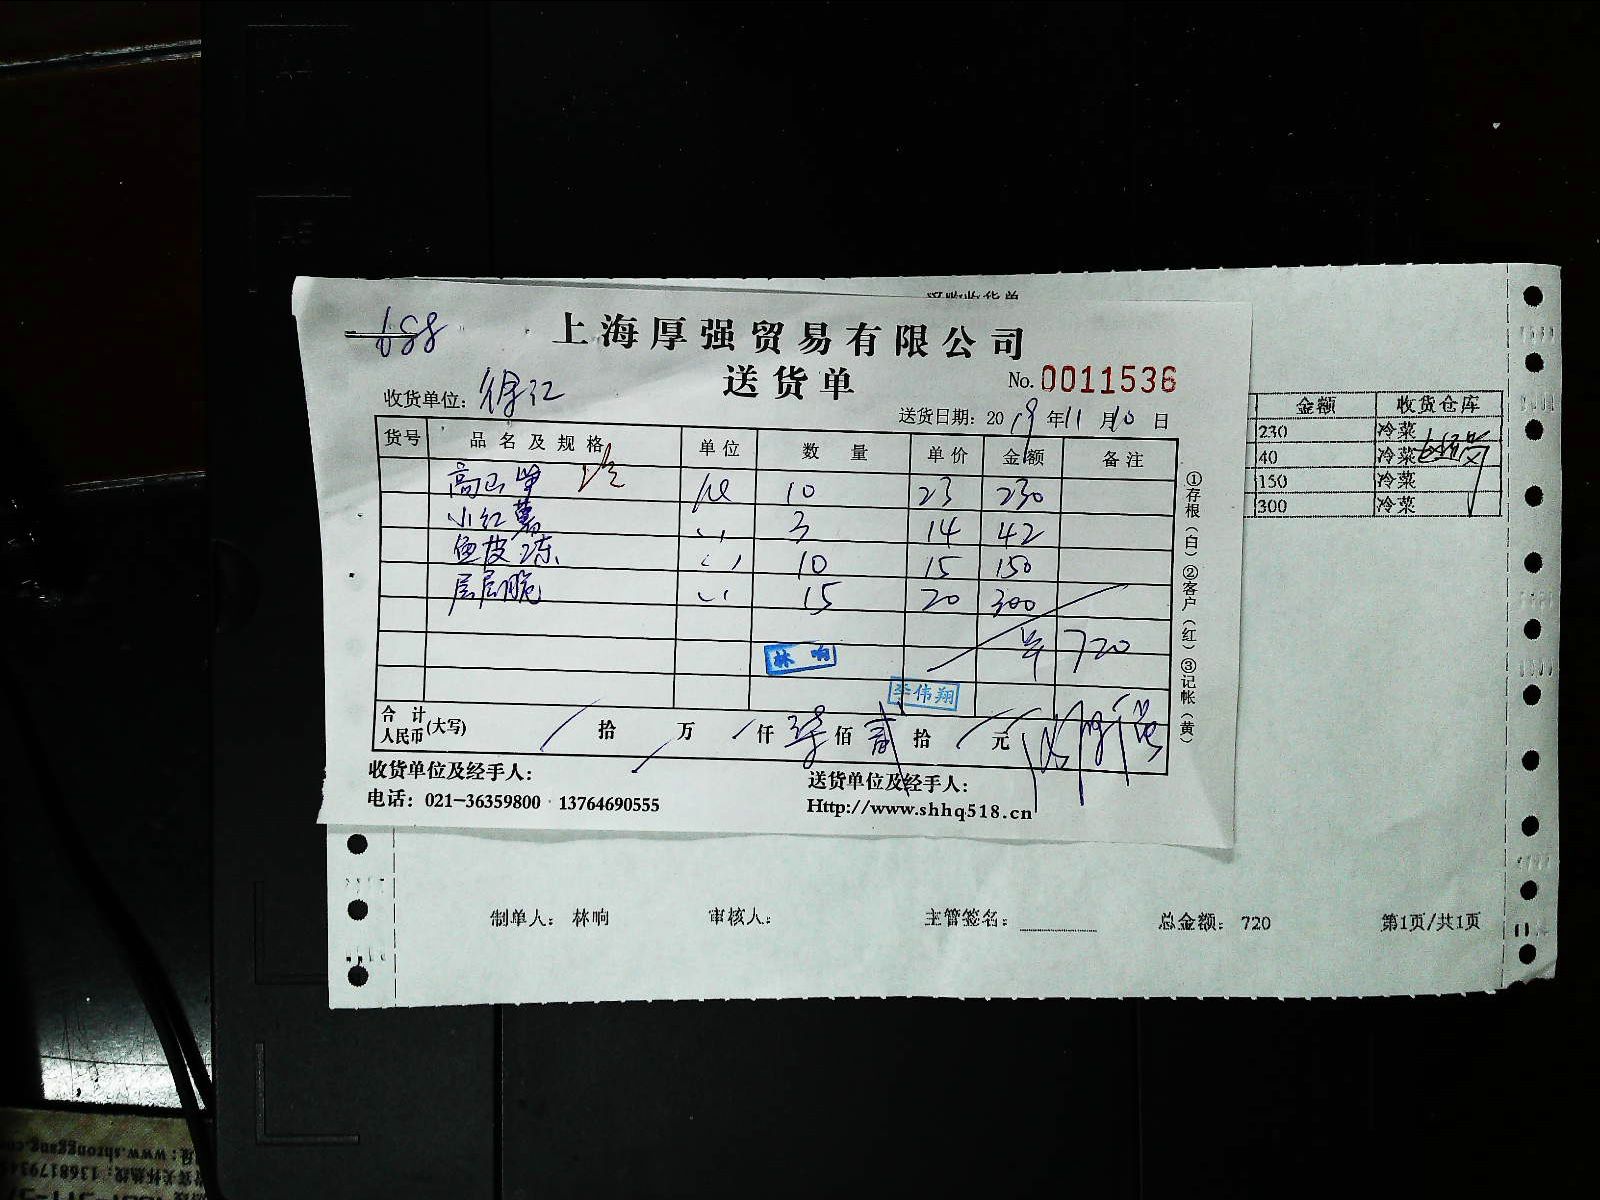 688
上海厚强贸易有限公司
送货单
No. 0011536
收货单位: 徐汇
送货日期: 2019年11月10日
货号 品名及规格 单位 数量 单价 金额 备注
高山笋 10 23 230
小红薯 〃 3 14 42
鱼皮冻 〃 10 15 150
层层脆 〃 15 20 300
¥720
林响
李伟翔
合计人民币(大写) 拾 万 仟 柒 佰 贰 拾 元
收货单位及经手人:
送货单位及经手人:
电话: 021-36359800 13764690555
Http://www.shhq518.cn
①存根(白)②客户(红)③记帐(黄)
金额 收货仓库
230 冷菜
40 冷菜
150 冷菜
300 冷菜
制单人: 林响 审核人: 主管签名: 总金额: 720 第1页/共1页